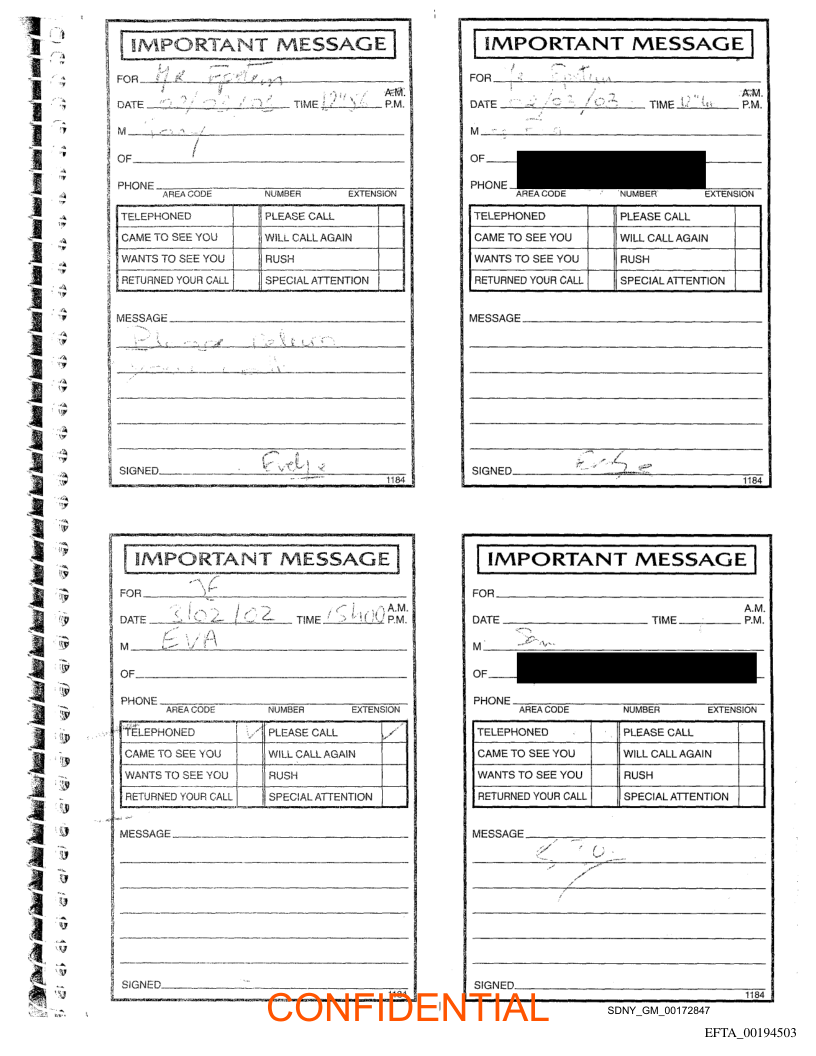 IMPORTANT MESSAGE
FOR MR Epstein
DATE 02/03/03 TIME A.M.
P.M.
M
OF
PHONE
AREA CODE NUMBER EXTENSION
TELEPHONED PLEASE CALL
CAME TO SEE YOU WILL CALL AGAIN
WANTS TO SEE YOU RUSH
RETURNED YOUR CALL SPECIAL ATTENTION
MESSAGE
Please return
your call
SIGNED
1184
IMPORTANT MESSAGE
FOR Epstein
DATE 02/03/03 TIME A.M.
P.M.
M
OF
PHONE
AREA CODE NUMBER EXTENSION
TELEPHONED PLEASE CALL
CAME TO SEE YOU WILL CALL AGAIN
WANTS TO SEE YOU RUSH
RETURNED YOUR CALL SPECIAL ATTENTION
MESSAGE
SIGNED
1184
IMPORTANT MESSAGE
FOR JE
DATE 3/02/02 TIME 15h00 A.M.
P.M.
M EVA
OF
PHONE
AREA CODE NUMBER EXTENSION
TELEPHONED PLEASE CALL
CAME TO SEE YOU WILL CALL AGAIN
WANTS TO SEE YOU RUSH
RETURNED YOUR CALL SPECIAL ATTENTION
MESSAGE
SIGNED
1184
IMPORTANT MESSAGE
FOR
DATE TIME A.M.
P.M.
M
OF
PHONE
AREA CODE NUMBER EXTENSION
TELEPHONED PLEASE CALL
CAME TO SEE YOU WILL CALL AGAIN
WANTS TO SEE YOU RUSH
RETURNED YOUR CALL SPECIAL ATTENTION
MESSAGE
SIGNED
1184
CONFIDENTIAL
SDNY_GM_00172847
EFTA_00194503